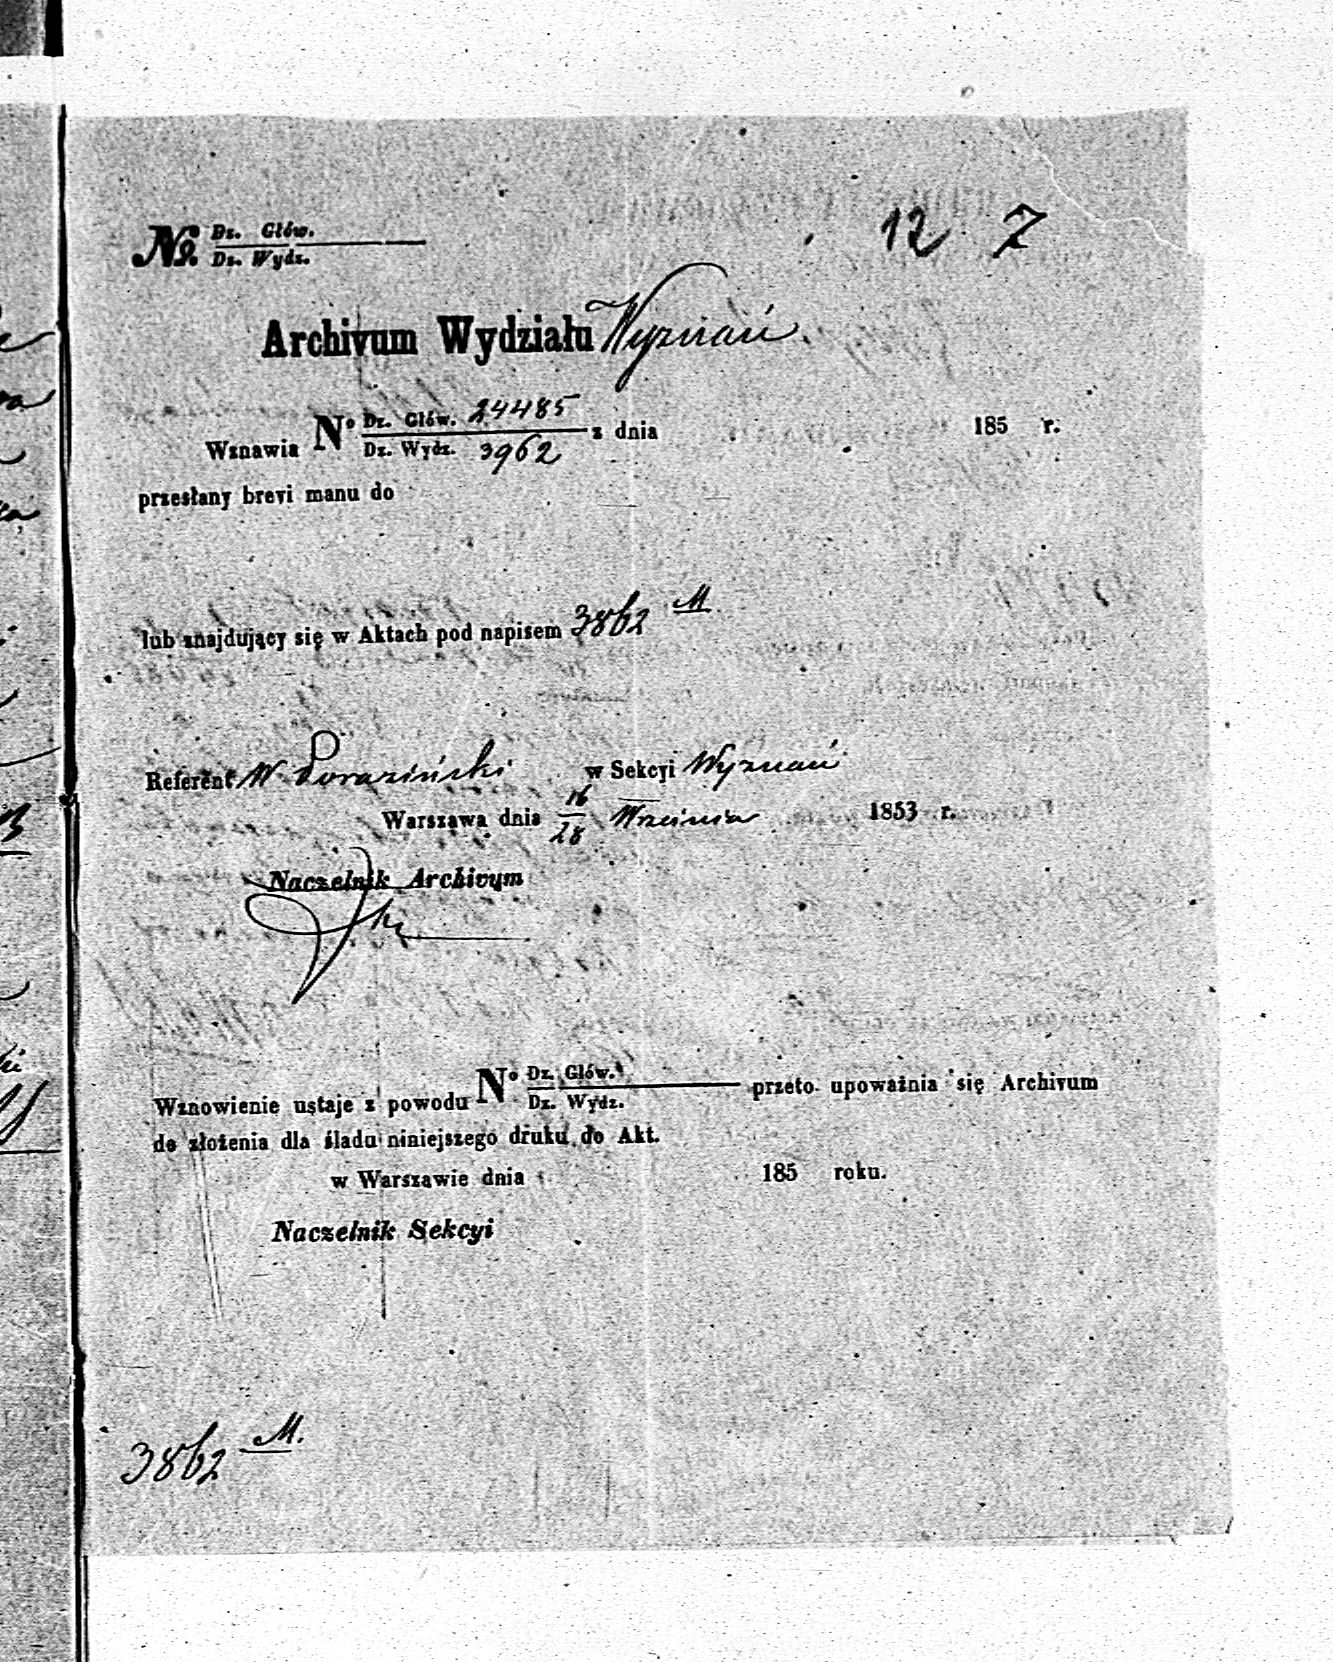 12 7
№ Dz. Głów.
Dz. Wydz.
Archivum Wydziału Wyznań.
Wznawia No Dz. Głów. 24485 z dnia 185 r.
Dz. Wydz. 3962
przesłany brevi manu do
lub znajdujący się w Aktach pod napisem 3862 M
Referent W. Poraziński w Sekcyi Wyznań
Warszawa dnia 16/28 Września 1853 r.
Naczelnik Archivum
Wznowienie ustaje z powodu No Dz. Głów. przeto upoważnia się Archivum
Dz. Wydz.
do złożenia dla śladu niniejszego druku do Akt.
w Warszawie dnia 185 roku.
Naczelnik Sekcyi
3862 M.